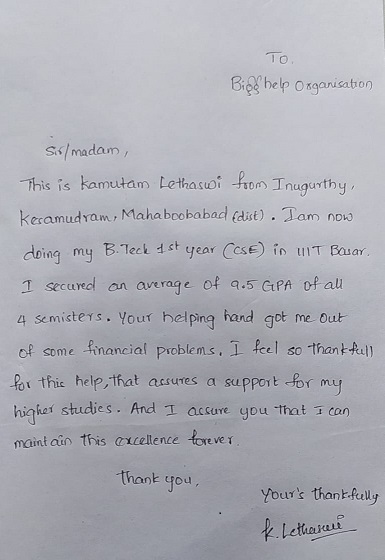 To
Bigg help Organisation
Sir/madam,
This is Kamutam Lethaswi from Inugurthy,
Kesamudram, Mahaboobabad (dist). I am now
doing my B.Teck 1st year (CSE) in IIIT Basar.
I secured an average of 9.5 GPA of all
4 semisters. Your helping hand got me out
of some financial problems. I feel so thankfull
for this help, that assures a support for my
higher studies. And I assure you that I can
maintain this excellence forever.
Thank you,
Your's thankfully
K. Lethaswi